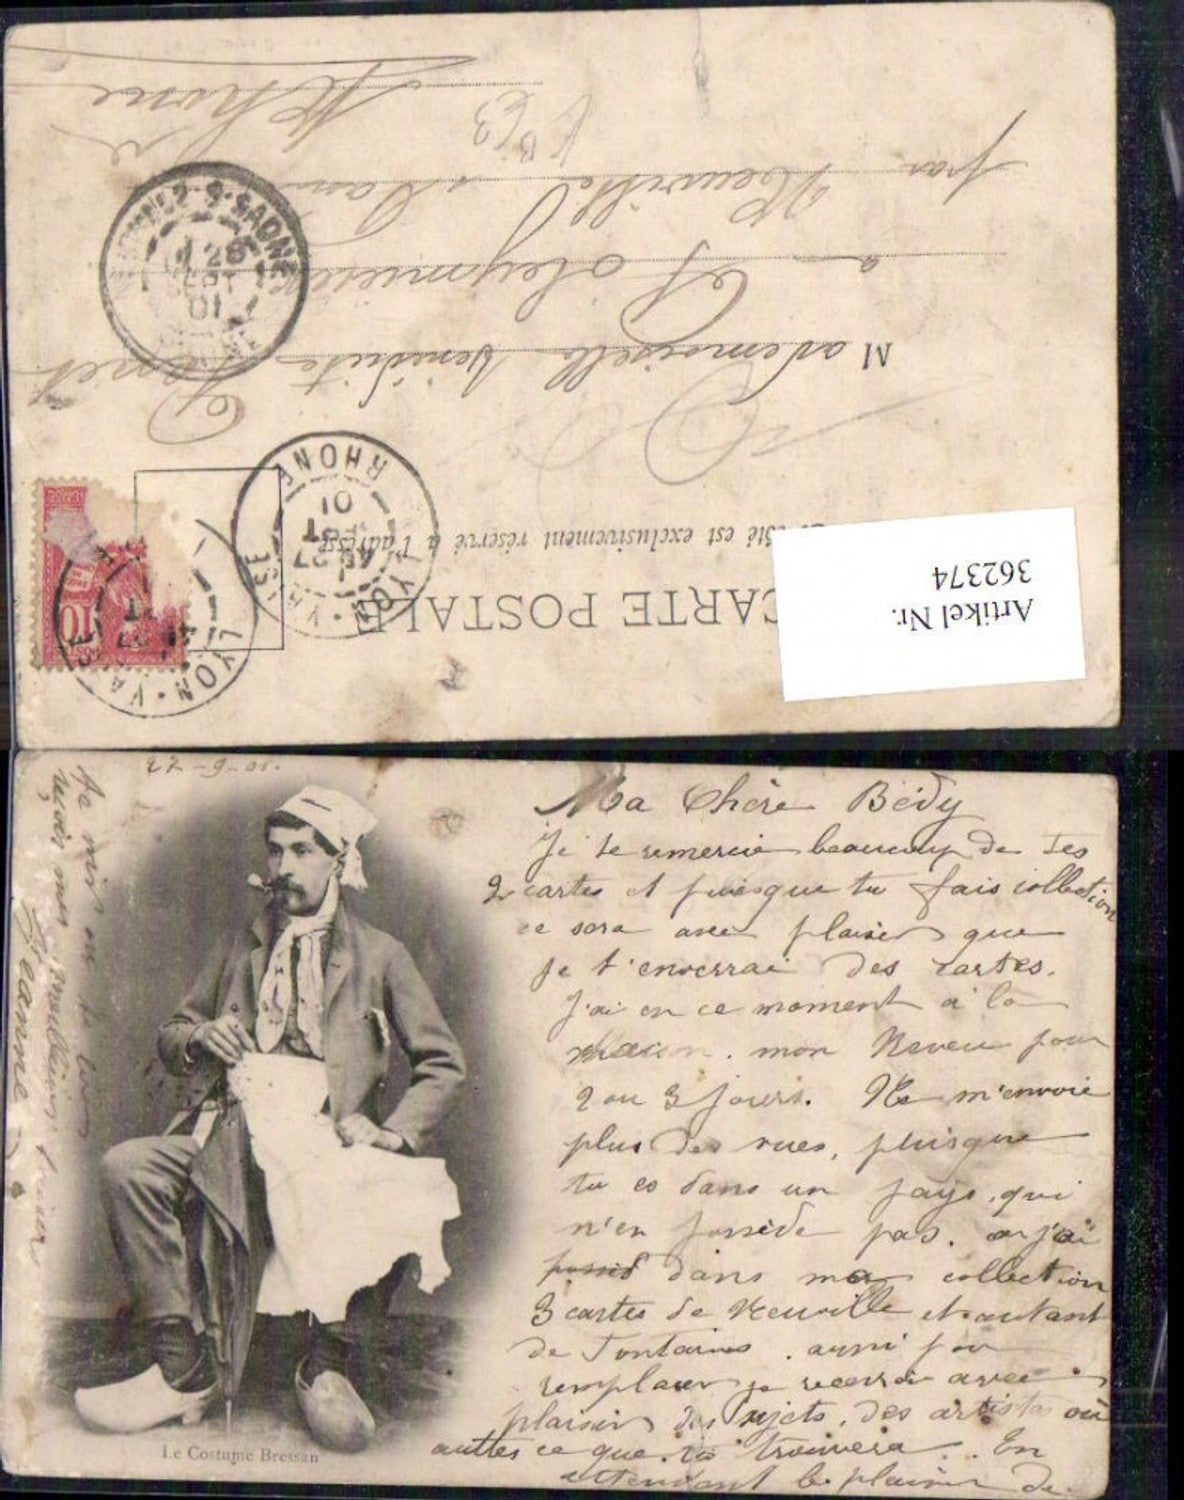 CARTE POSTALE
côté est exclusivement réservé à l'adresse
Artikel Nr.
362374
LYON-VAISE
27
01
RHONE
LYON-VAISE
27
10
Mademoiselle Bénédicte
à Poleymieux
par Neuville s Saône
Rhône
S-SAONE
28
01
22-9-01.
Ma Chère Bédy
Je te remercie beaucoup de tes
2 cartes et puisque tu fais collection
ce sera avec plaisir que
je t'enverrai des cartes.
J'ai en ce moment à la
maison. mon Neveu pour
2 ou 3 jours. Ne m'envoie
plus des vues, puisque
tu es dans un pays, qui
n'en possède pas. car j'ai
dans ma collection
3 cartes de Neuville et autant
de Fontaines. aussi pour
remplacer je recevrai avec
plaisir des sujets, des artistes ou
autres ce que tu trouvera. En
attendant le plaisir de
te
recevoir mes meilleurs baisers
Jeanne
Le Costume Bressan